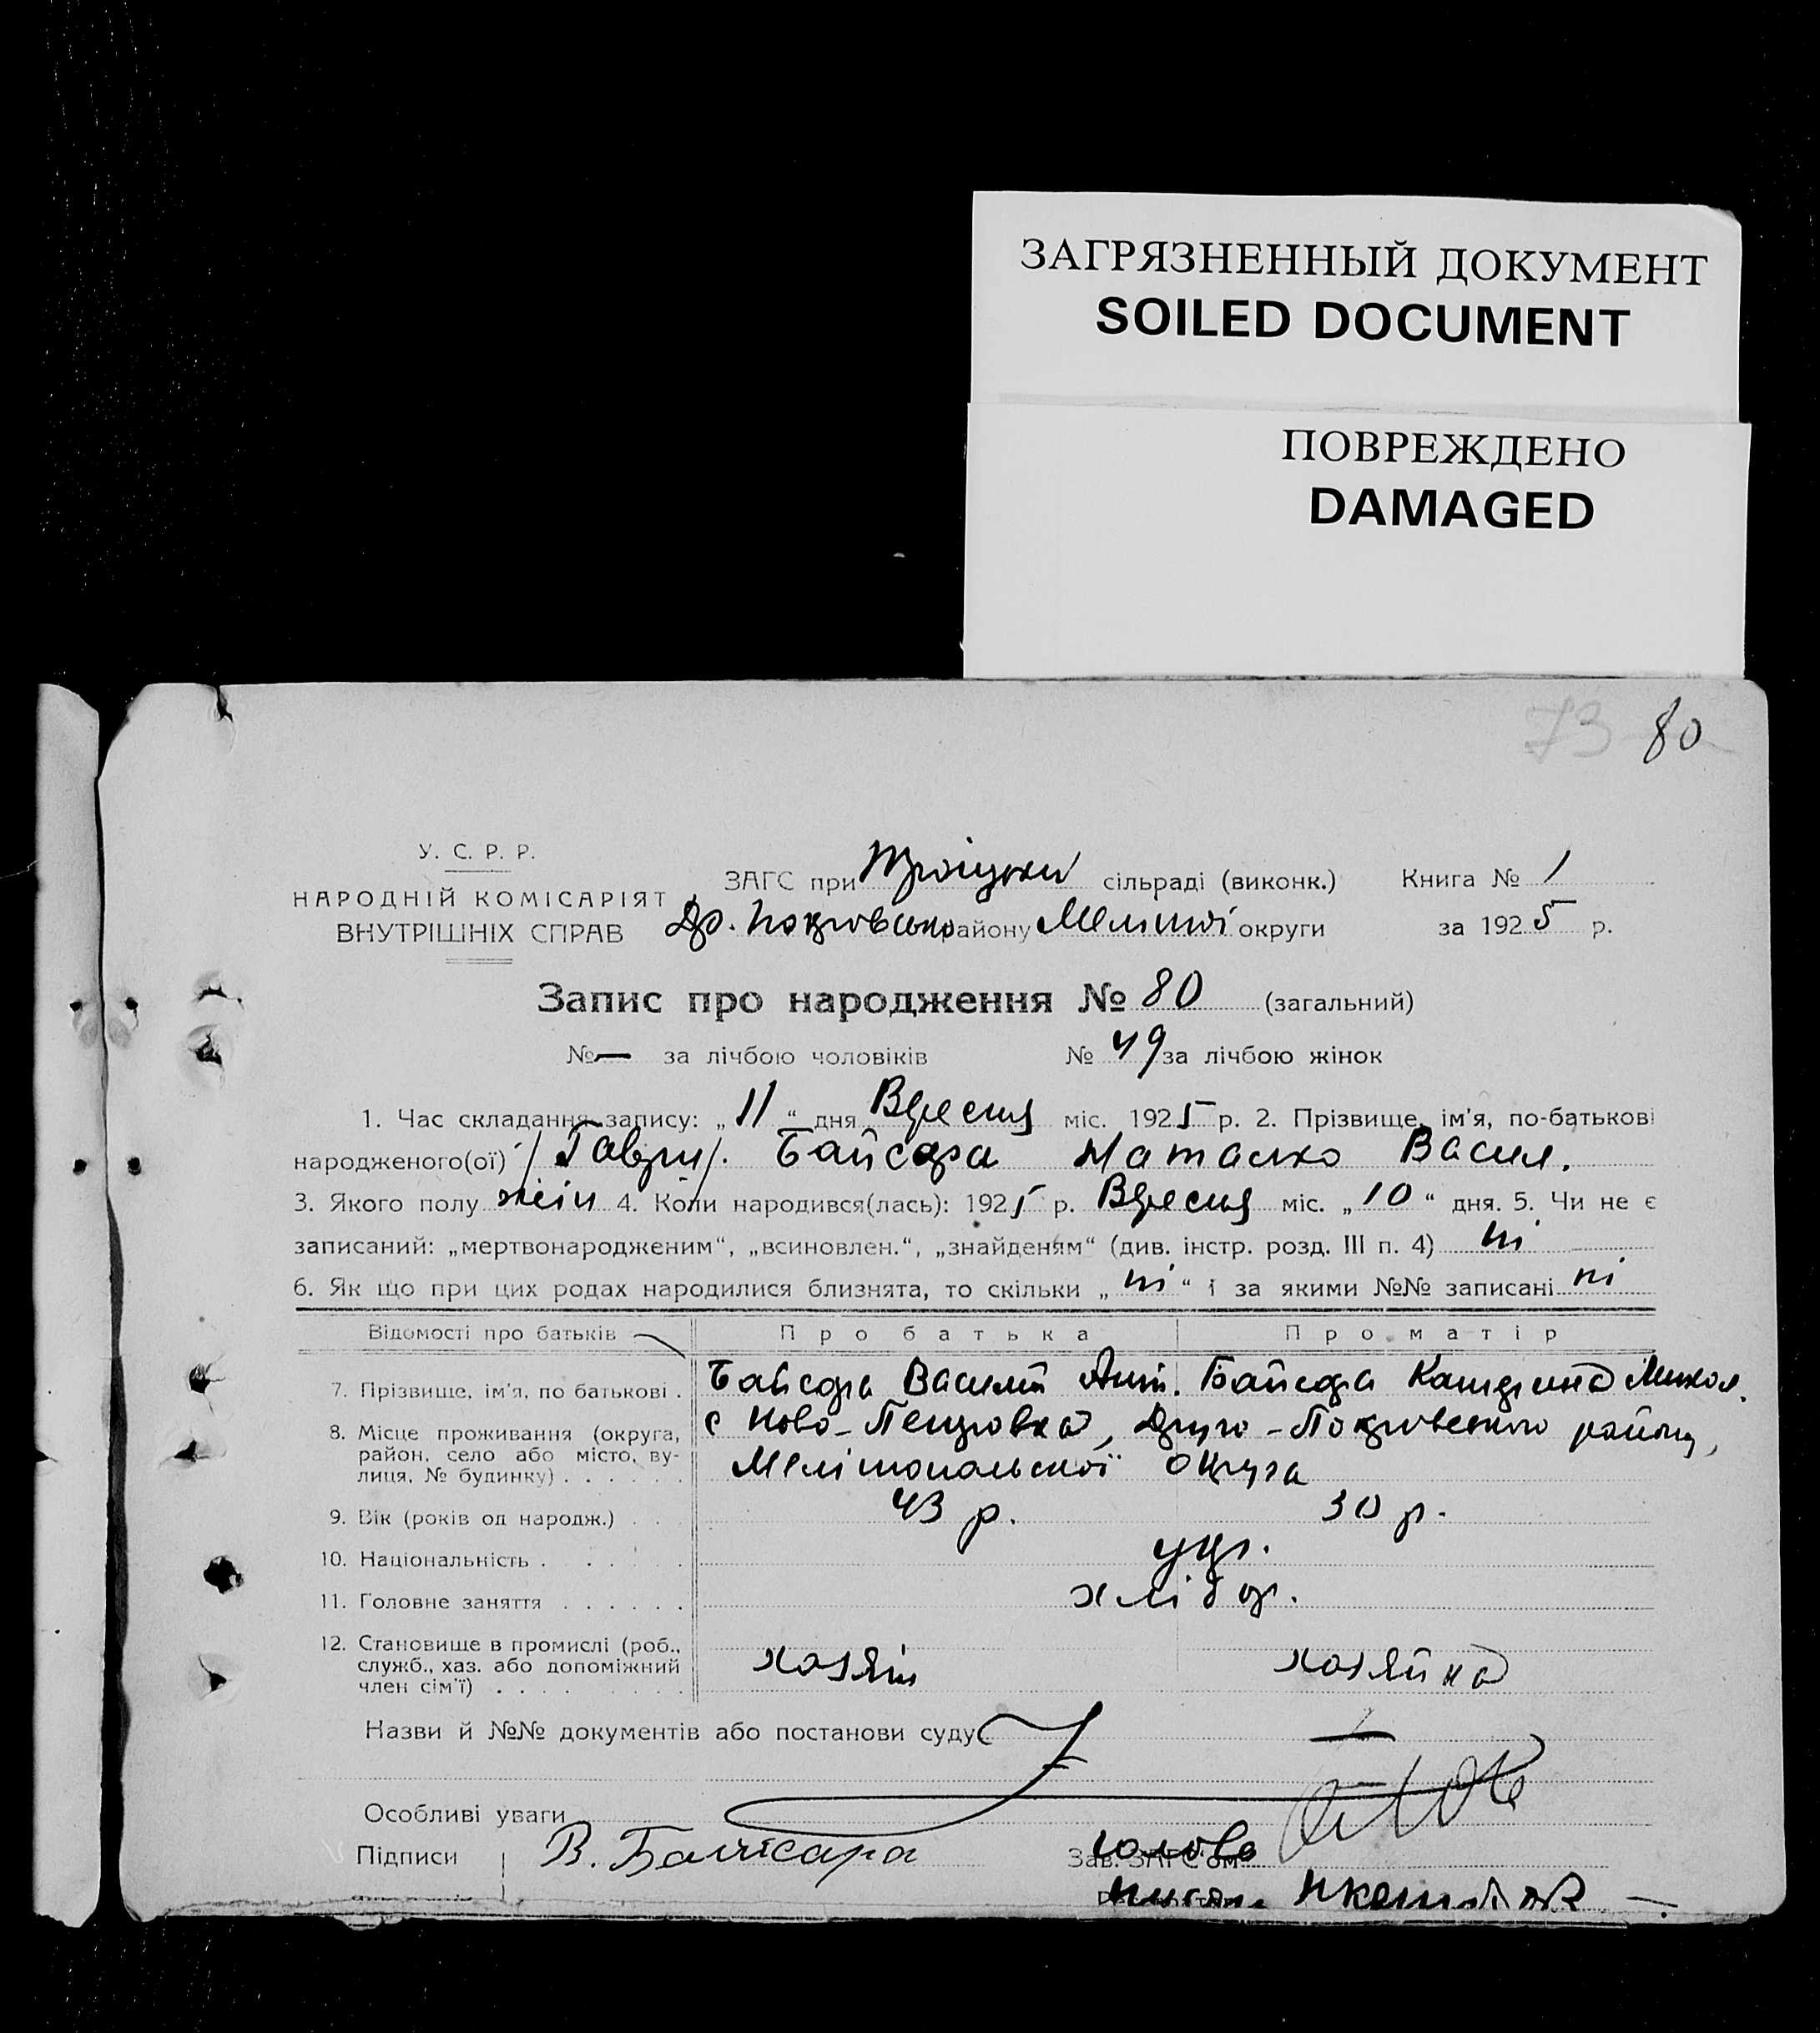 ЗАГРЯЗНЕННЫЙ ДОКУМЕНТ
SOILED DOCUMENT
ПОВРЕЖДЕНО
DAMAGED
73 80
У. С. Р. Р.
НАРОДНІЙ КОМІСАРІЯТ
ВНУТРІШНІХ СПРАВ
ЗАГС при сільраді (виконк.) Книга № 1
району округи за 1925 р.
Запис про народження № 80 (загальний)
№ — за лічбою чоловіків № 49 за лічбою жінок
1. Час складання запису: „11“ дня Вересня міс. 1925 р. 2. Прізвище, ім'я, по-батькові
народженого(ої) Байсара Наталко Васил.
3. Якого полу жін 4. Коли народився(лась): 1925 р. Вересня міс. „10“ дня. 5. Чи не є
записаний: „мертвонародженим“, „всиновлен.“, „знайденям“ (див. інстр. розд. III п. 4) ні
6. Як що при цих родах народилися близнята, то скільки „ні“ і за якими №№ записані ні
Відомості про батьків Про батька Про матір
7. Прізвище, ім'я, по батькові . Байсара Василь Ант. Байсара Катерина Микол.
8. Місце проживання (округа, район, село або місто, вулиця, № будинку) . . . . . . с Ново-Петровка, Друго-Покровського району,
Мелітопольської округа
9. Вік (років од народж.) . . 43 р. 30 р.
10. Національність . . . . . укр.
11. Головне заняття . . . . . . хлібор.
12. Становище в промислі (роб.,
служб., хаз. або допоміжний
член сім'ї) . . . . . . . . хозяїн хозяйка
Назви й №№ документів або постанови суду
Особливі уваги
Підписи В. Байсара Зав. ЗАГС'ом голова